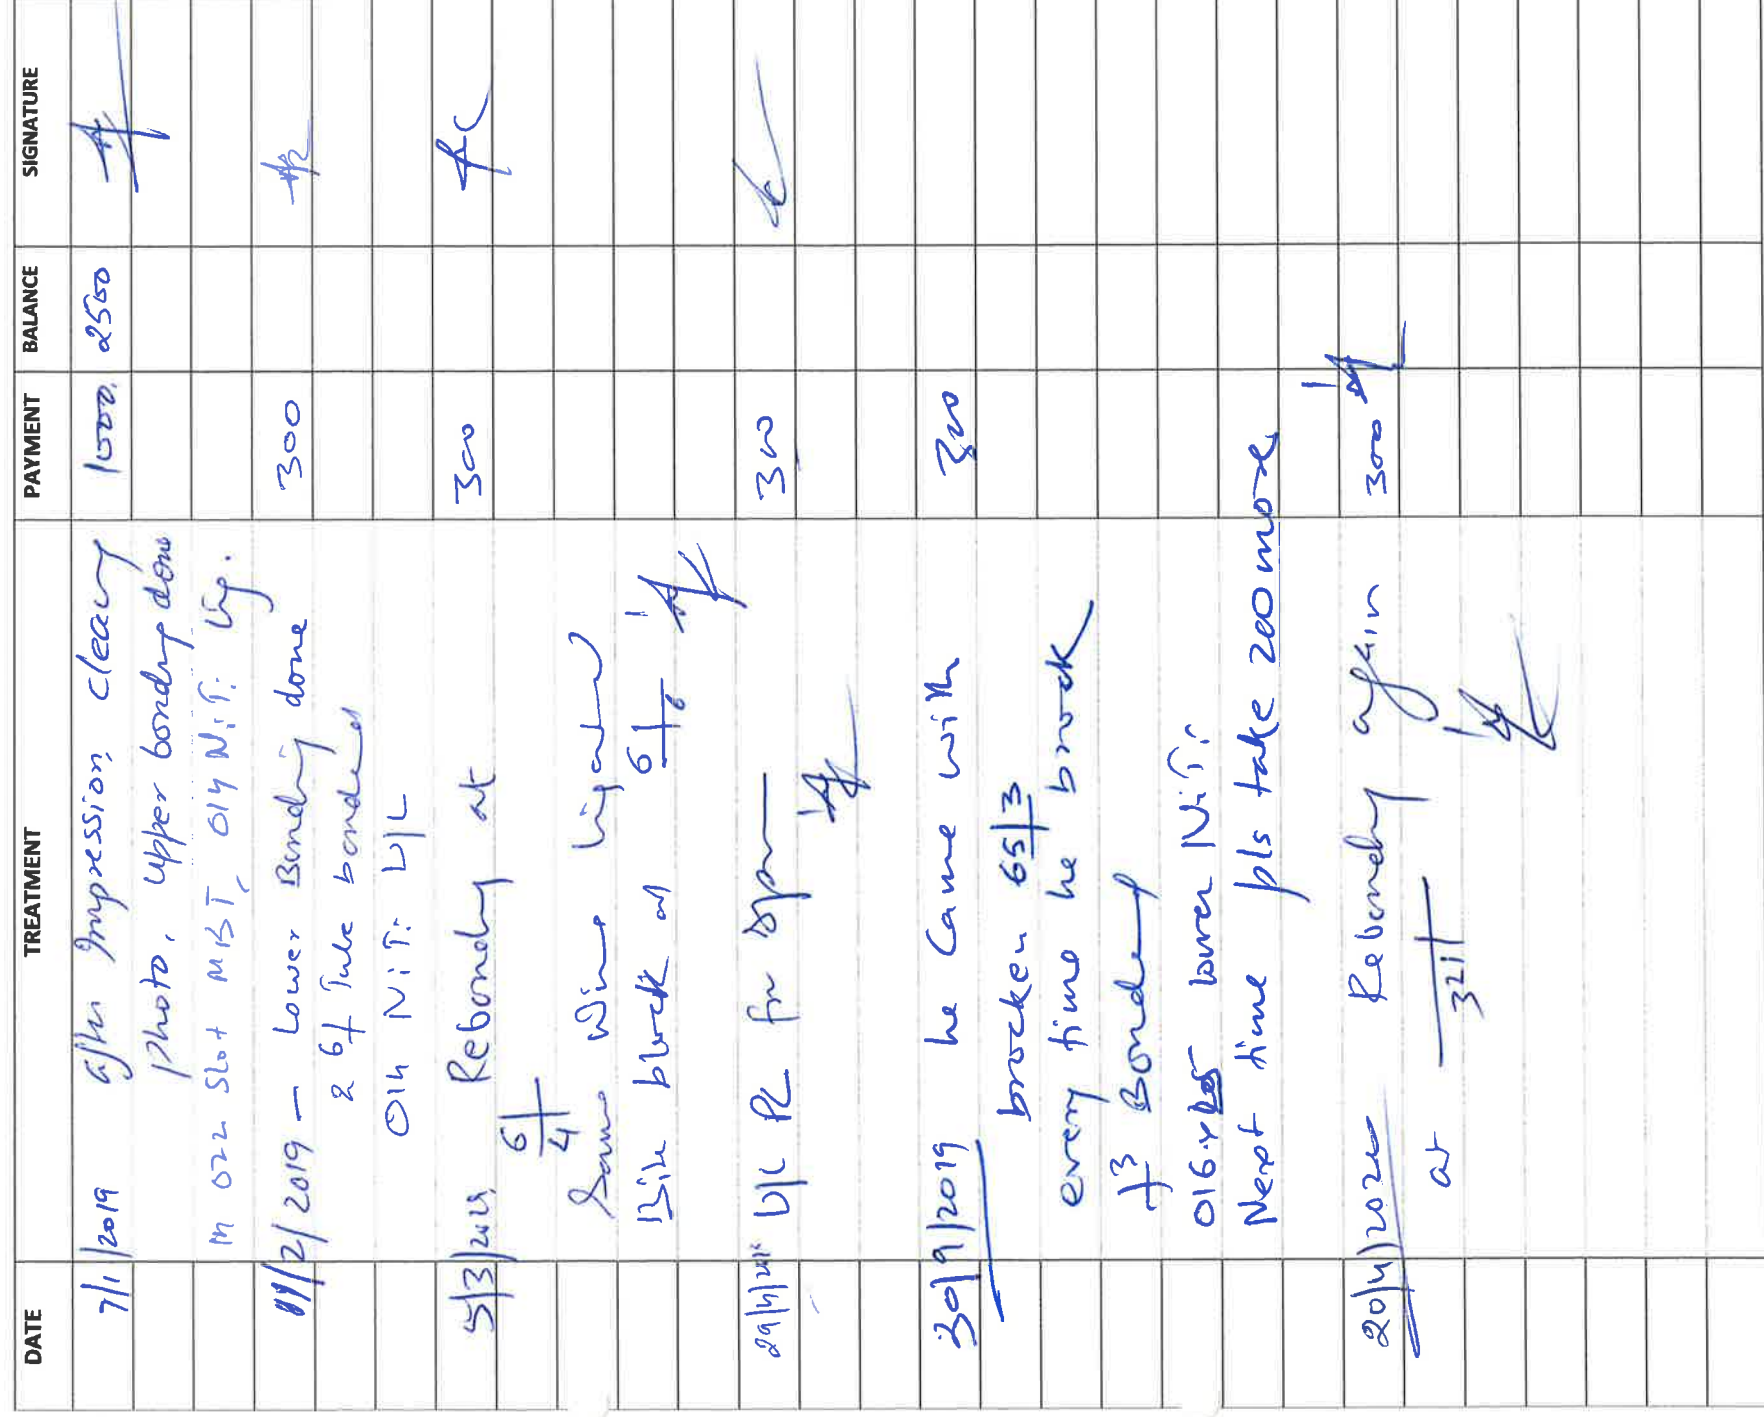 DATE TREATMENT PAYMENT BALANCE SIGNATURE
7/1/2019 after Impression, cleany 1000. 2500
photo, upper bonding done
in 022 Slot MBT, 014 NiTi Lig.
2/2019 — Lower Bonding done 300
& 6+ Tube bonded
014 NiTi U/L
5/3/2019 Rebonding at 300
6
4
Same Wire Ligature
Bite block at 6 6
29/4/201 U/L PC for 300
30/9/2019 he Came with 300
brocken 65 3
every time he brock
3 Bonded
016 lower NiTi
Next time pls take 200 more
20/4/202 Rebonding again 300
at 321